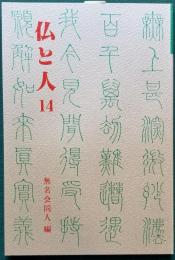 無上甚深微妙法
百千萬劫難遭遇
我今見聞得受持
願解如來眞實義
仏と人
14
無名会同人 編